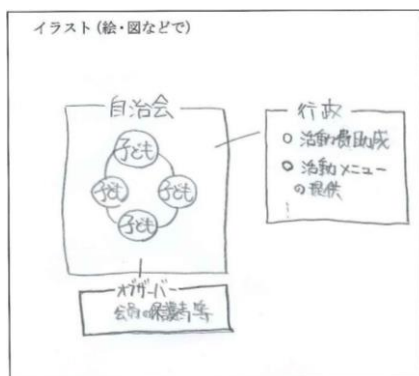 イラスト（絵・図などで）
自治会
子ども
子ども
子ども
子ども
行政
○ 活動費助成
○ 活動メニュー
の提供
オブザーバー
会員の保護者等